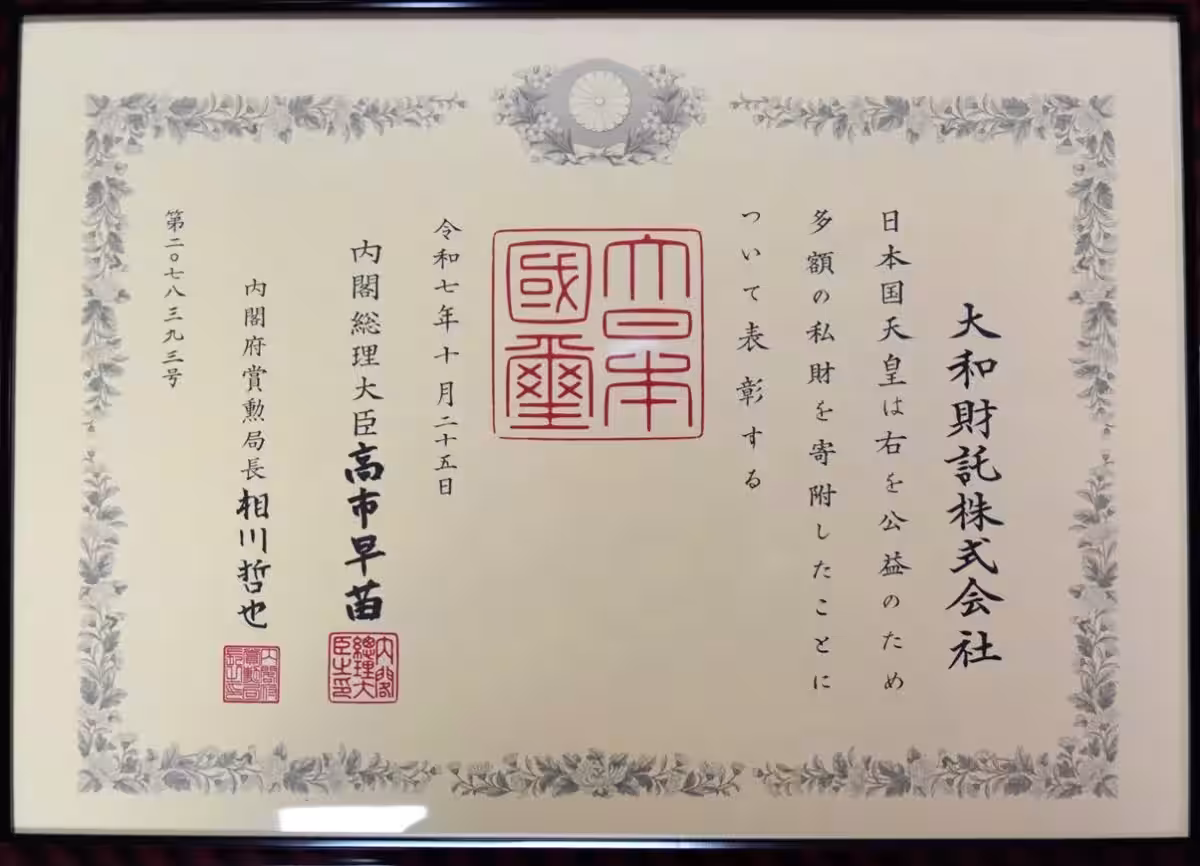 大和財託株式会社
日本国天皇は右を公益のため
多額の私財を寄附したことに
ついて表彰する
大日本國璽
令和七年十月二十五日
内閣総理大臣高市早苗
内閣總理大臣之印
内閣府賞勲局長相川哲也
内閣府賞勲局長之印
第二〇七八三九三号